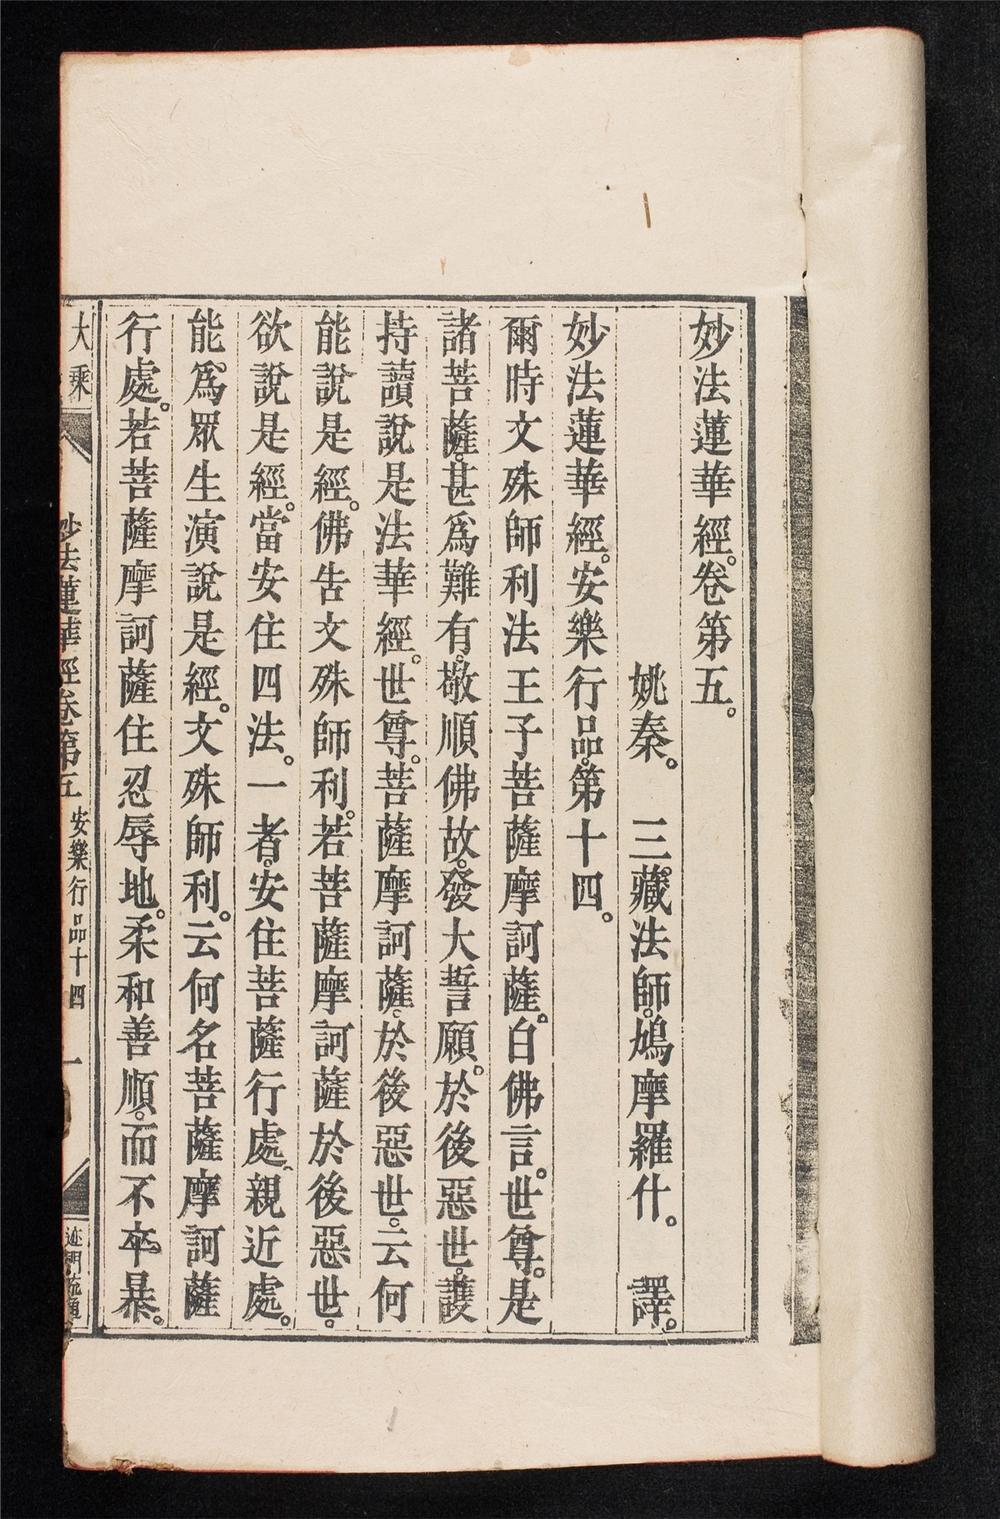 妙法蓮華經。卷第五。
姚秦。　三藏法師。鳩摩羅什。　譯。
妙法蓮華經。安樂行品。第十四。
爾時文殊師利法王子菩薩摩訶薩。白佛言。世尊。是
諸菩薩。甚爲難有。敬順佛故。發大誓願。於後惡世。護
持讀說是法華經。世尊。菩薩摩訶薩。於後惡世。云何
能說是經。佛告文殊師利。若菩薩摩訶薩於後惡世。
欲說是經。當安住四法。一者。安住菩薩行處、親近處。
能。爲眾生演說是經。文殊師利。云何名菩薩摩訶薩
行處。若菩薩摩訶薩住忍辱地。柔和善順。而不卒暴。
大乘　妙法蓮華經卷第五　安樂行品十四　一　迹門流通